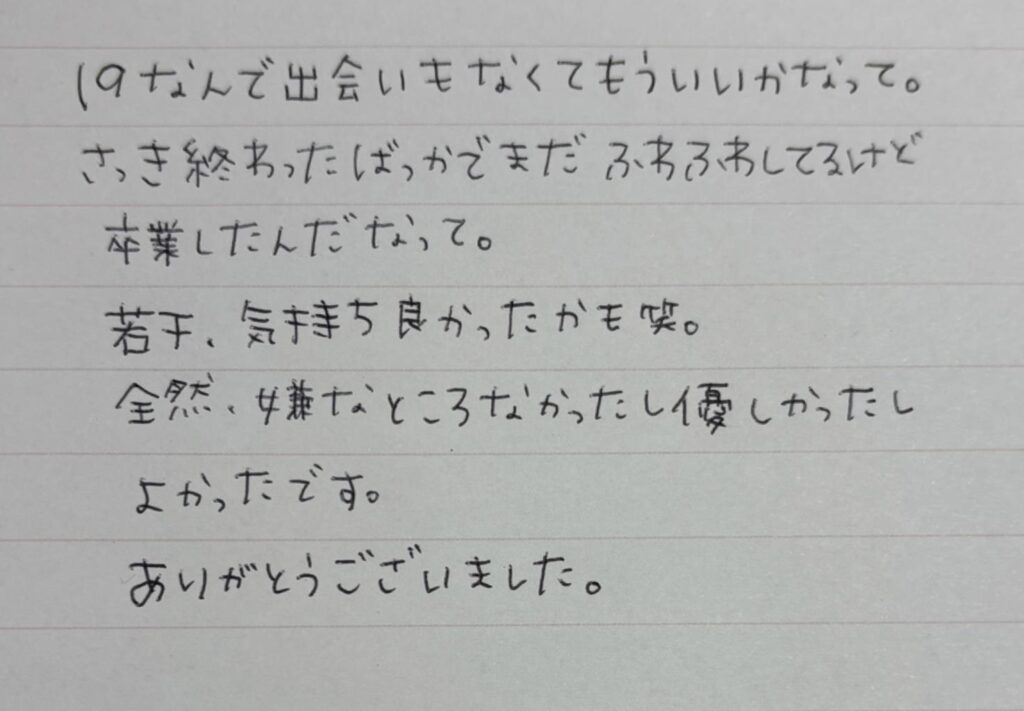 19なんで出会いもなくてもういいかなって。
さっき終わったばっかでまだふわふわしてるけど
卒業したんだなって。
若干、気持ち良かったかも笑。
全然、嫌なところなかったし優しかったし
よかったです。
ありがとうございました。